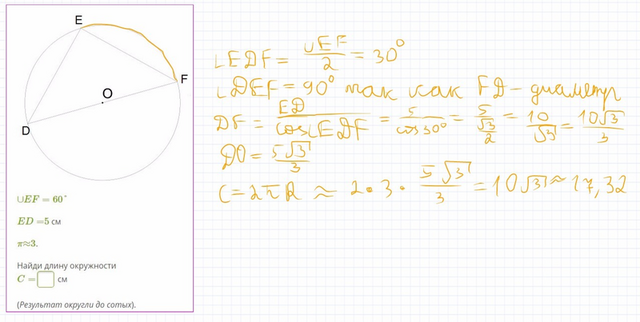 E
F
O
D
∪EF = 60°
ED =5 см
π≈3.
Найди длину окружности
C = см
(Результат округли до сотых).
∟EDF = ∪EF/2 = 30°
∟DEF = 90° так как FD – диаметр
DF = ED/cos∟EDF = 5/cos30° = 5/(√3/2) = 10/√3 = 10√3/3
DO = 5√3/3
C = 2πR ≈ 2·3· 5√3/3 = 10√3 ≈ 17,32